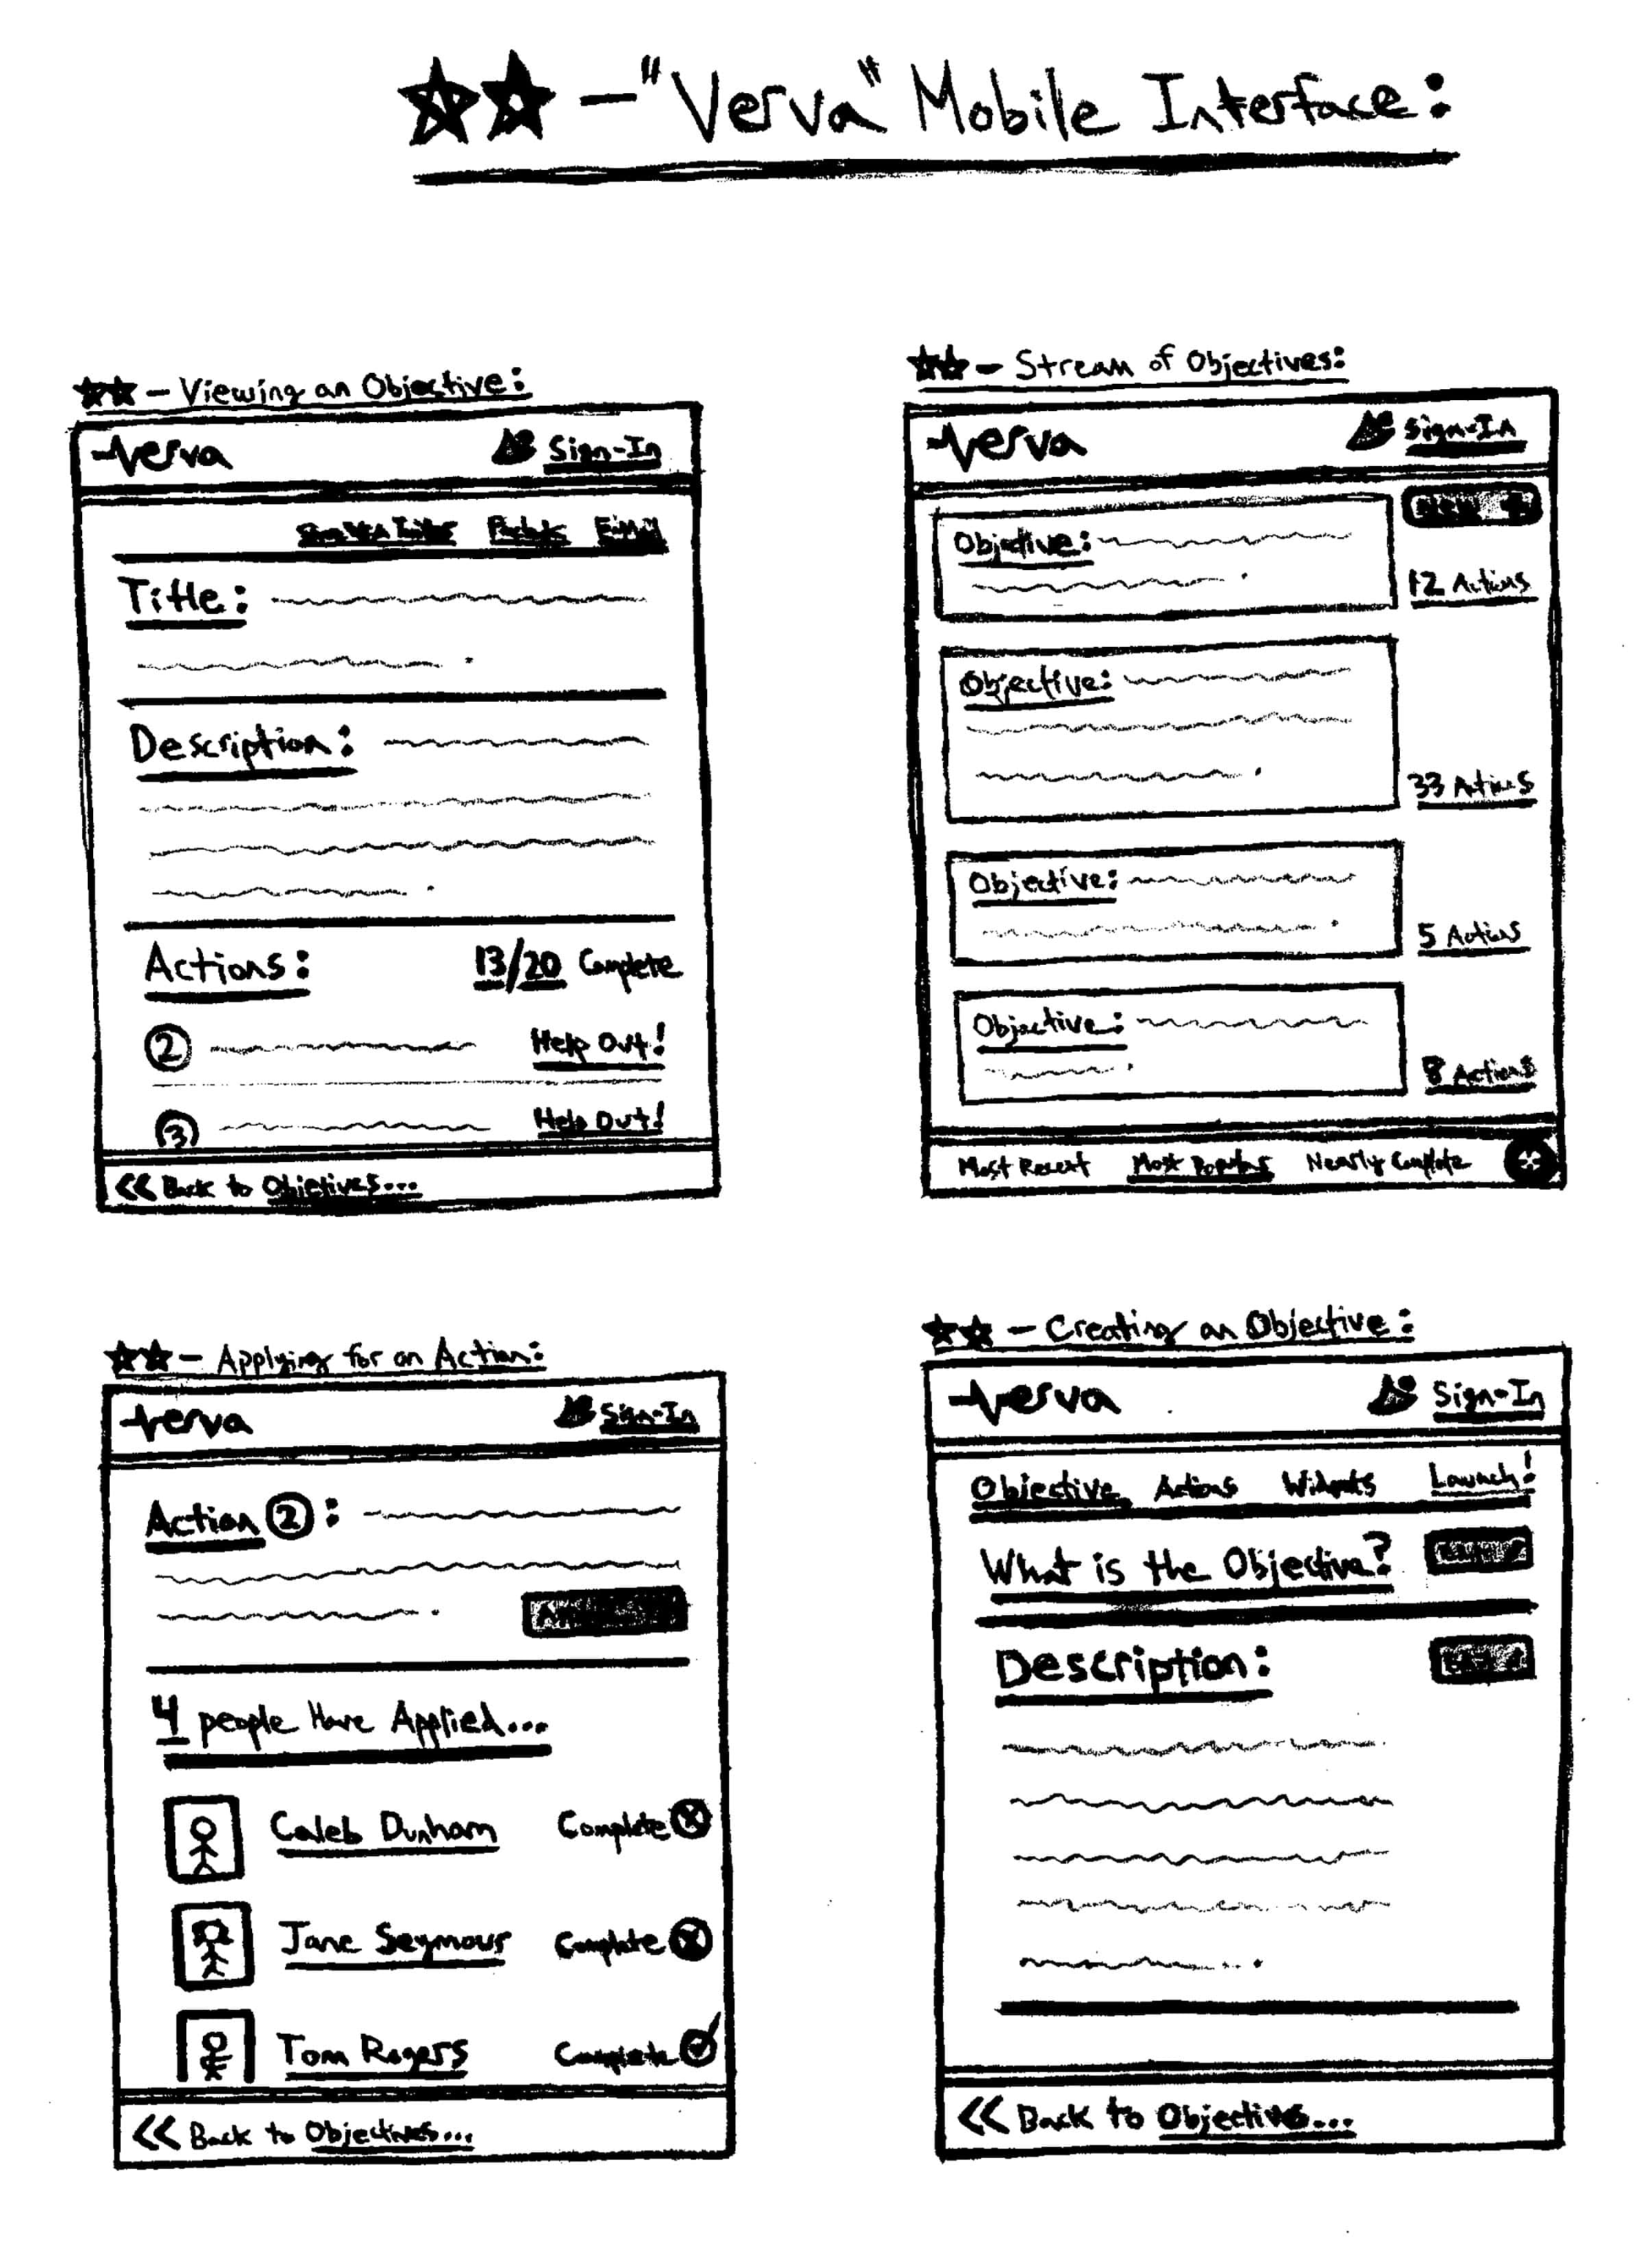 "Verva" Mobile Interface:
- Viewing an Objective:
Verva Sign-In
Title:
Description:
Actions: 13/20 Complete
2 Help Out!
3 Help Out!
<< Back to Objectives...
- Stream of Objectives:
Verva Sign-In
Objective:
12 Actions
Objective:
33 Actions
Objective:
5 Actions
Objective:
8 Actions
Most Recent Most Popular Nearly Complete
- Applying for an Action:
Verva Sign-In
Action 2:
4 people Have Applied...
Caleb Dunham Complete
Jane Seymour Complete
Tom Rogers Complete
<< Back to Objectives...
- Creating an Objective:
Verva Sign-In
Objective Actions Widgets Launch!
What is the Objective?
Description:
<< Back to Objectives...